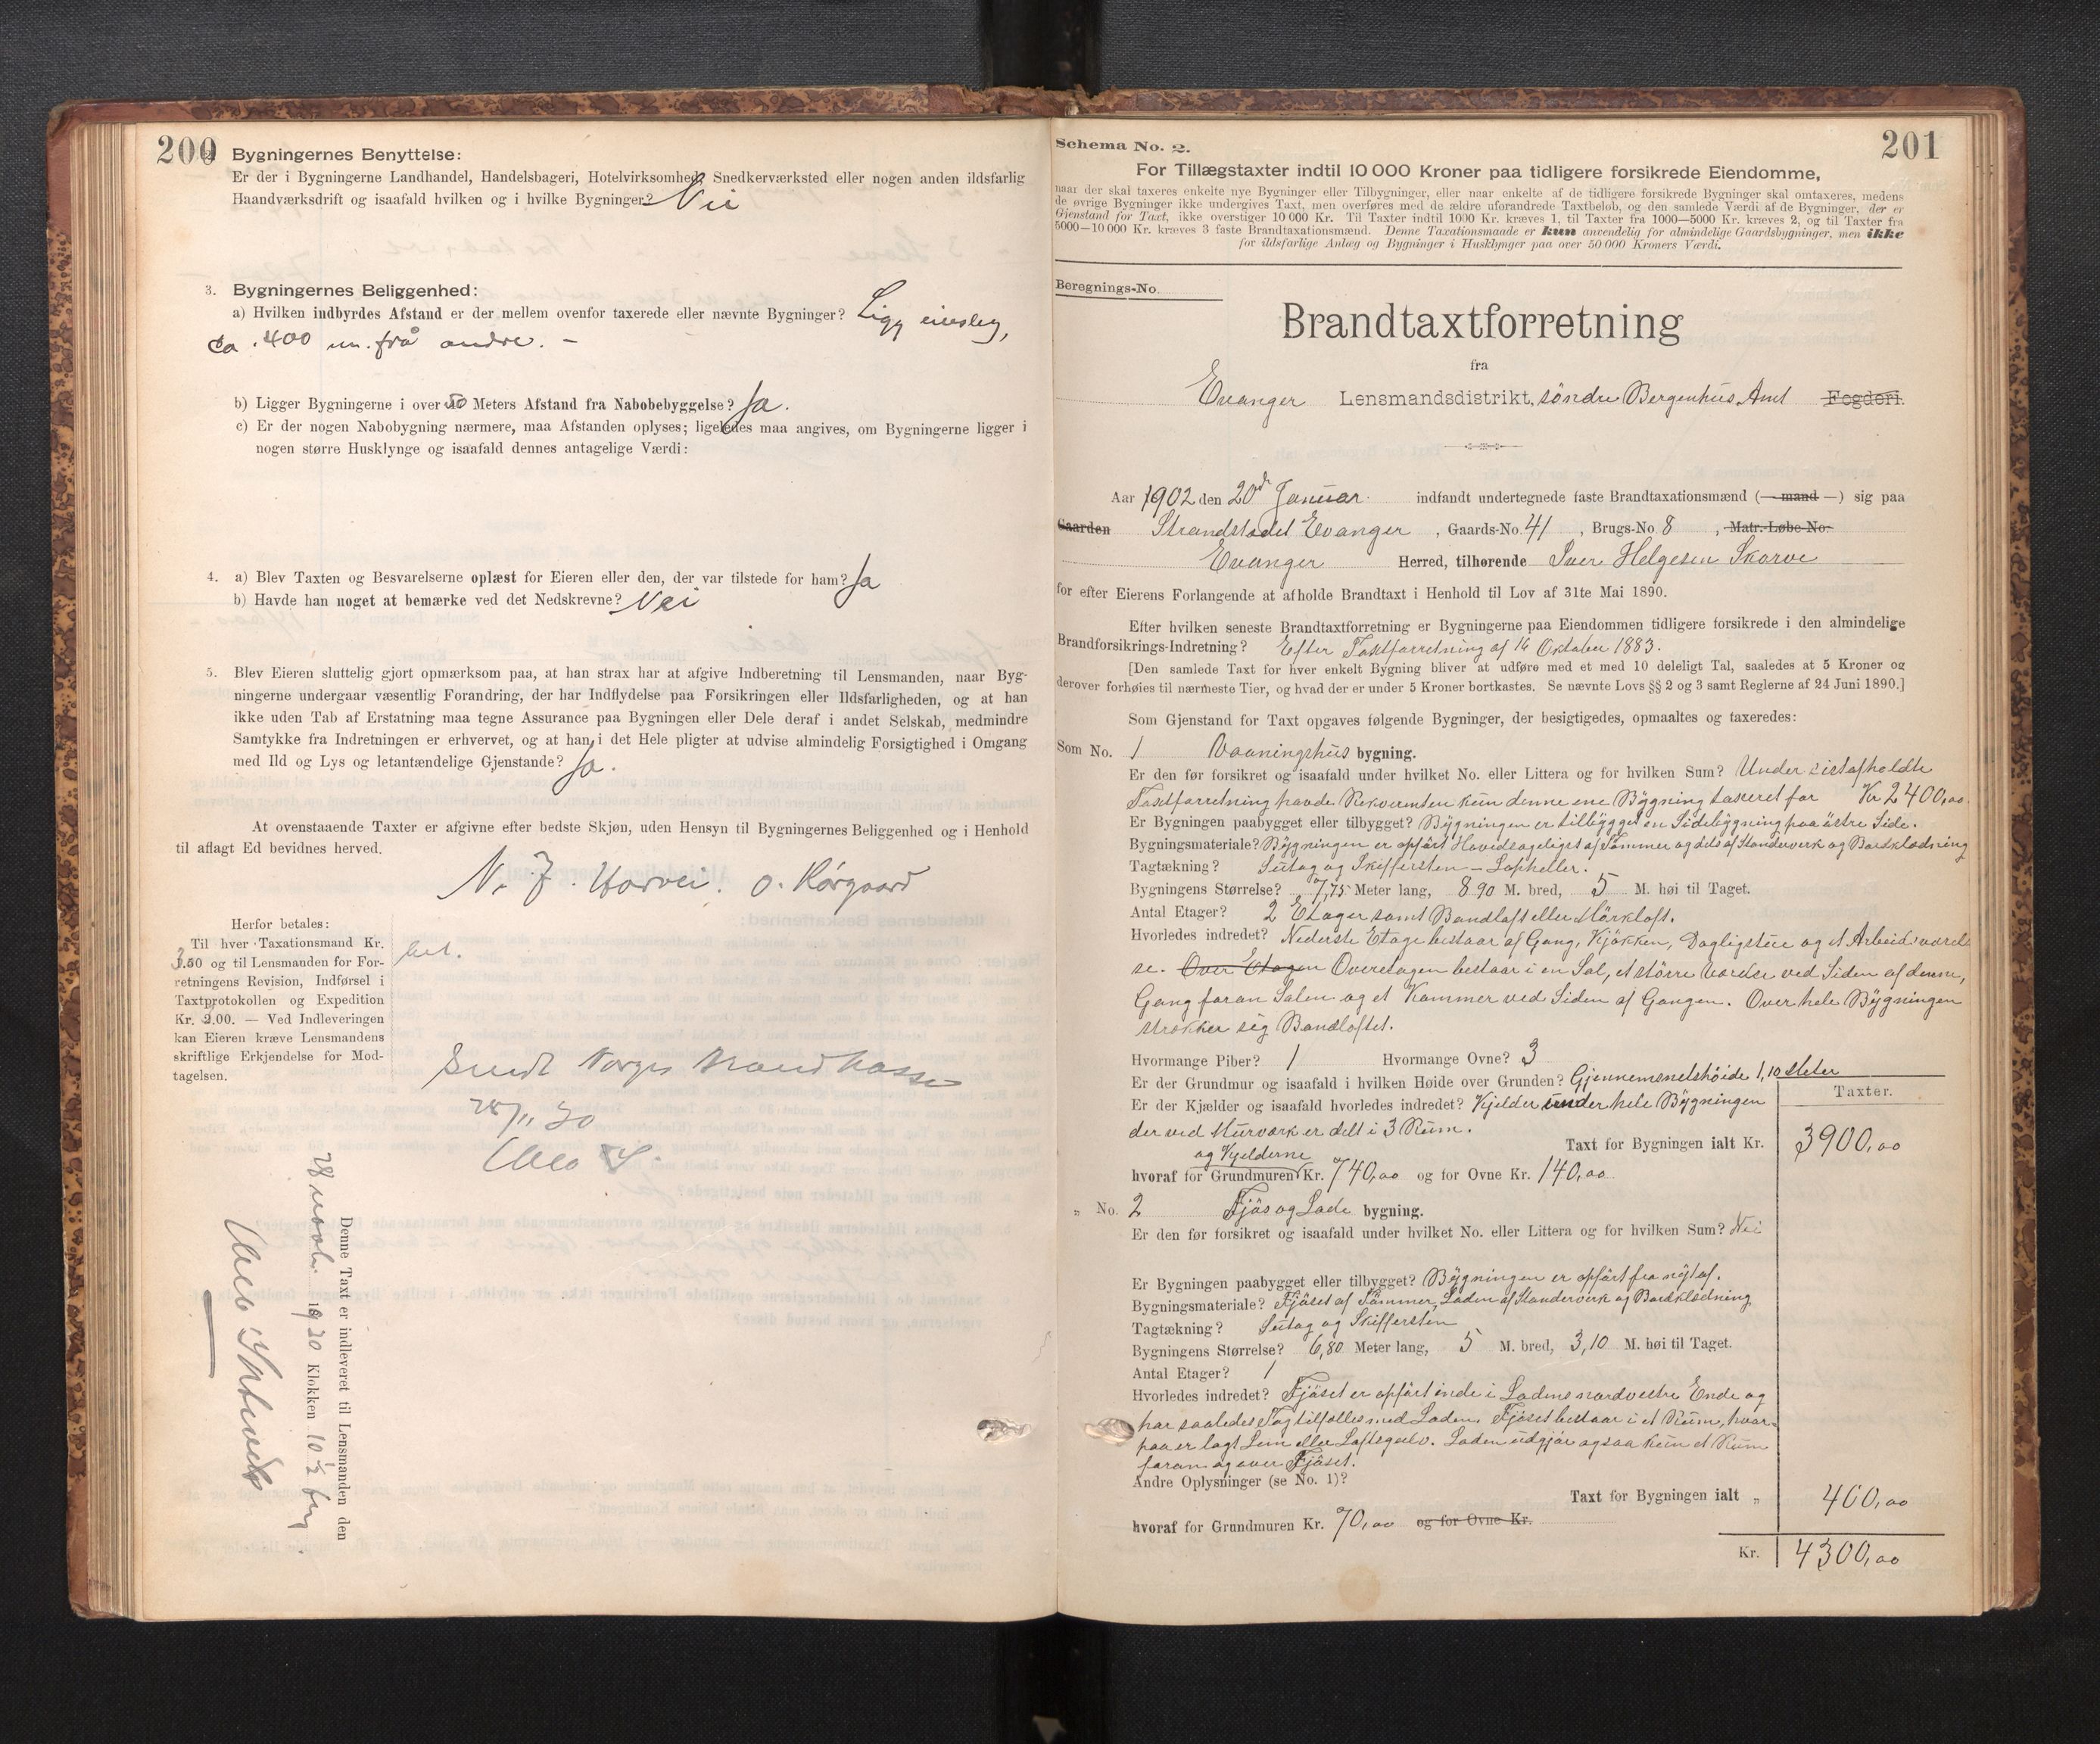 200
2. Bygningernes Benyttelse:
Er der i Bygningerne Landhandel, Handelsbageri, Hotelvirksomhed, Snedkerværksted eller nogen anden ildsfarlig
Haandværksdrift og isaafald hvilken og i hvilke Bygninger? Nei
3. Bygningernes Beliggenhed:
a) Hvilken indbyrdes Afstand er der mellem ovenfor taxerede eller nævnte Bygninger? Ligg einsleg,
ca. 400 m. frå andre. –
b) Ligger Bygningerne i over 50 Meters Afstand fra Nabobebyggelse? Ja.
c) Er der nogen Nabobygning nærmere, maa Afstanden oplyses; ligeledes maa angives, om Bygningerne ligger i
nogen større Husklynge og isaafald dennes antagelige Værdi:
4. a) Blev Taxten og Besvarelserne oplæst for Eieren eller den, der var tilstede for ham? Ja
b) Havde han noget at bemærke ved det Nedskrevne? Nei
5. Blev Eieren sluttelig gjort opmærksom paa, at han strax har at afgive Indberetning til Lensmanden, naar Byg-
ningerne undergaar væsentlig Forandring, der har Indflydelse paa Forsikringen eller Ildsfarligheden, og at han
ikke uden Tab af Erstatning maa tegne Assurance paa Bygningen eller Dele deraf i andet Selskab, medmindre
Samtykke fra Indretningen er erhvervet, og at han i det Hele pligter at udvise almindelig Forsigtighed i Omgang
med Ild og Lys og letantændelige Gjenstande? Ja.
At ovenstaaende Taxter er afgivne efter bedste Skjøn, uden Hensyn til Bygningernes Beliggenhed og i Henhold
til aflagt Ed bevidnes herved.
N. J. Horvei. O. Rørgaard
Herfor betales:
Til hver Taxationsmand Kr.
3.50 og til Lensmanden for For-
retningens Revision, Indførsel i
Taxtprotokollen og Expedition
Kr. 2.00. — Ved Indleveringen
kan Eieren kræve Lensmandens
skriftlige Erkjendelse for Mod-
tagelsen.
bet.
Sendt Norges Brandkasse
28/11 30
Denne Taxt er indleveret til Lensmanden den
28 novbr. 1930 Klokken 10 ½ fm
201
Schema No. 2.
For Tillægstaxter indtil 10 000 Kroner paa tidligere forsikrede Eiendomme,
naar der skal taxeres enkelte nye Bygninger eller Tilbygninger, eller naar enkelte af de tidligere forsikrede Bygninger skal omtaxeres, medens
de øvrige Bygninger ikke undergives Taxt, men overføres med de ældre uforandrede Taxtbeløb, og den samlede Værdi af de Bygninger, der er
Gjenstand for Taxt, ikke overstiger 10 000 Kr. Til Taxter indtil 1000 Kr. kræves 1, til Taxter fra 1000—5000 Kr. kræves 2, og til Taxter fra
5000—10 000 Kr. kræves 3 faste Brandtaxationsmænd. Denne Taxationsmaade er kun anvendelig for almindelige Gaardsbygninger, men ikke
for ildsfarlige Anlæg og Bygninger i Husklynger paa over 50 000 Kroners Værdi.
Beregnings-No.
Brandtaxtforretning
fra
Evanger Lensmandsdistrikt, söndre Bergenhus Amt Fogderi.
Aar 1902 den 20de Januar indfandt undertegnede faste Brandtaxationsmænd (— mand —) sig paa
Gaarden Strandstedet Evanger, Gaards-No. 41, Brugs-No. 8, Matr.-Løbe-No.
Evanger Herred, tilhørende Iver Helgesen Skorve
for efter Eierens Forlangende at afholde Brandtaxt i Henhold til Lov af 31te Mai 1890.
Efter hvilken seneste Brandtaxtforretning er Bygningerne paa Eiendommen tidligere forsikrede i den almindelige
Brandforsikrings-Indretning? Efter Taxtforretning af 16 Oktober 1883.
[Den samlede Taxt for hver enkelt Bygning bliver at udføre med et med 10 deleligt Tal, saaledes at 5 Kroner og
derover forhøies til nærmeste Tier, og hvad der er under 5 Kroner bortkastes. Se nævnte Lovs §§ 2 og 3 samt Reglerne af 24 Juni 1890.]
Som Gjenstand for Taxt opgaves følgende Bygninger, der besigtigedes, opmaaltes og taxeredes:
Som No. 1 Vaaningshus bygning.
Er den før forsikret og isaafald under hvilket No. eller Littera og for hvilken Sum? Under sistafholdte
Taxtforretning havde Rekvirenten kun denne ene Bygning taxeret for Kr 2400,00.
Er Bygningen paabygget eller tilbygget? Bygningen er tilbygget en Sidebygning paa östre Side.
Bygningsmateriale? Bygningen er opfört Hovedsageligst af Tömmer og dels af Standerverk og Bordklædning
Tagtækning? Sutag og Skiffersten –
Bygningens Størrelse? 7,75 Meter lang, 8,90 M. bred, 5 M. høi til Taget.
Antal Etager? 2 Etager samt Bandloft eller Mörkloft.
Hvorledes indredet? Nederste Etage bestaar af Gang, Kjökken, Dagligstue og et Arbeidsværel-
se. Over Etagen Overetagen bestaar i en Sal, et större Værelse ved Siden af denne,
Gang foran Salen og et Kammer ved Siden af Gangen. Over hele Bygningen
strækker sig Bandloftet.
Hvormange Piber? 1 Hvormange Ovne? 3
Er der Grundmur og isaafald i hvilken Høide over Grunden? Gjennemsnetshöide 1,10 Meter
Er der Kjælder og isaafald hvorledes indredet? Kjelder under hele Bygningen
der ved Murværk er delt i 3 Rum.
Taxter.
Taxt for Bygningen ialt Kr. 3900,00
og Kjelderne
hvoraf for Grundmuren Kr. 740,00 og for Ovne Kr. 140,00
„ No. 2 Fjös og Lade bygning.
Er den før forsikret og isaafald under hvilket No. eller Littera og for hvilken Sum? Nei
Er Bygningen paabygget eller tilbygget? Bygningen er opfört fra nyt af.
Bygningsmateriale? Fjöset af Tömmer, Laden af Standerverk og Bordklædning
Tagtækning? Sutag og Skiffersten
Bygningens Størrelse? 6,80 Meter lang, 5 M. bred, 3,10 M. høi til Taget.
Antal Etager? 1
Hvorledes indredet? Fjöset er opfört inde i Ladens nordvestre Ende og
har saaledes Tag tilfælles med Laden. Fjöset bestaar i et Rum, hvor-
paa er lagt Lem eller Loftsgulv. Laden udgjör ogsaa kun et Rum
foran og over Fjöset.
Andre Oplysninger (se No. 1)?
Taxt for Bygningen ialt „ 400,00
hvoraf for Grundmuren Kr. 70,00 og for Ovne Kr.
Kr. 4300,00